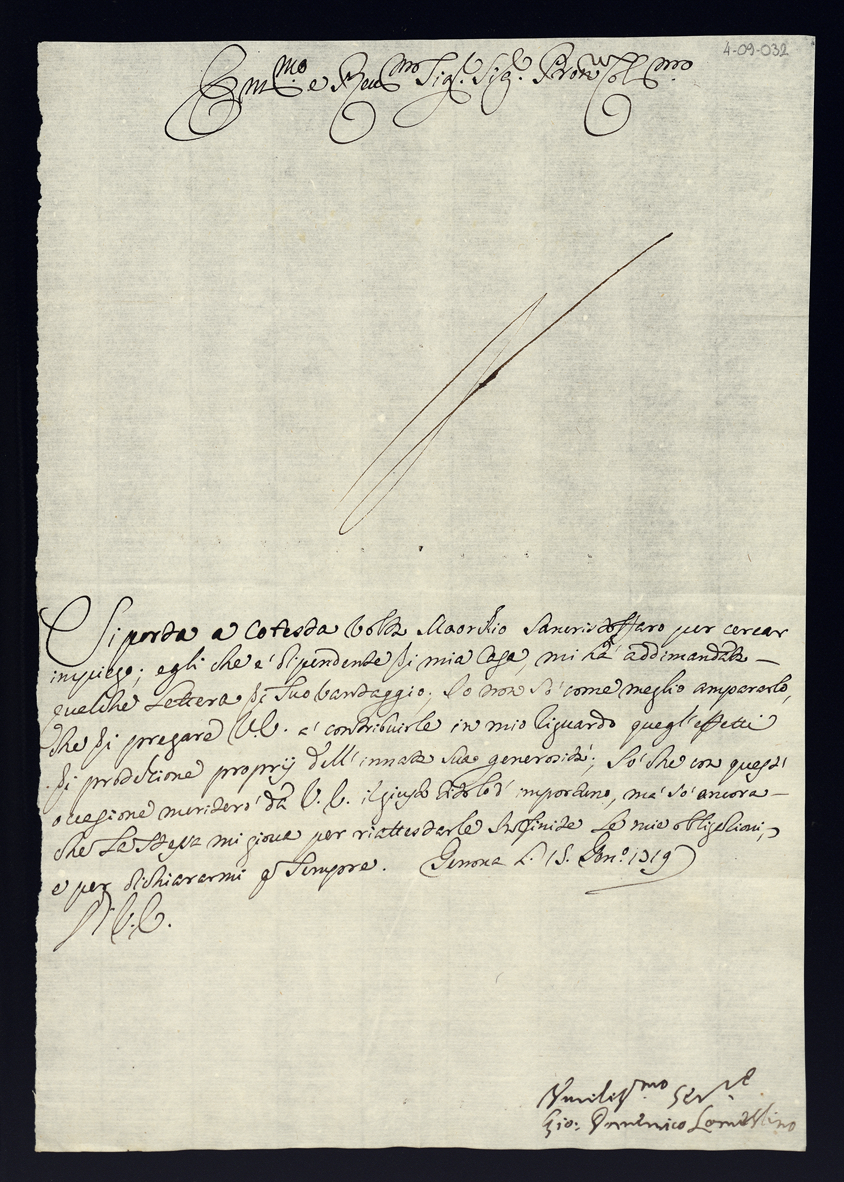 4-09-032
Em.mo e Reu.mo Sig.r Sig.r Pron Col.mo
Si porta a cotesta volta Maoritio Sancristoffaro per cercar
impiego; egli che e' dipendente di mia Casa, mi ha addimandata
qualche Lettera di Suo vantaggio; Io non so' come meglio ampararlo,
che di pregare V.E. a' contribuirle in mio riguardo quegl'effetti
di protetione proprij dell'innata sua generosità; So' che con questa
occasione meritero' da V.E. il giusto titolo d'importuno, ma' so' ancora
che la stessa mi gioua per riattestarle infinite le mie obligationi,
e per dichiararmi p Sempre. Genoua L. 15. Gen.o 1719
D V.E.
Vmiliss.mo Ser.re
Gio: Domenico Lomellino